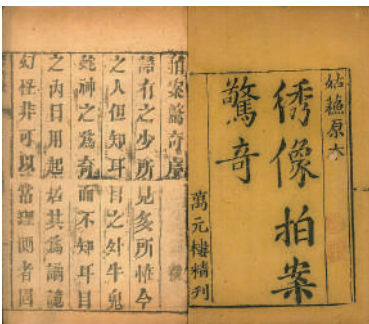 姑蘓原本
綉像拍案
驚奇
萬元樓精刊
拍案驚奇序
語有之少所見多所怪今
之人但知耳目之外牛鬼
蛇神之爲奇而不知耳目
之内日用起居其爲譎詭
幻怪非可以常理測者固